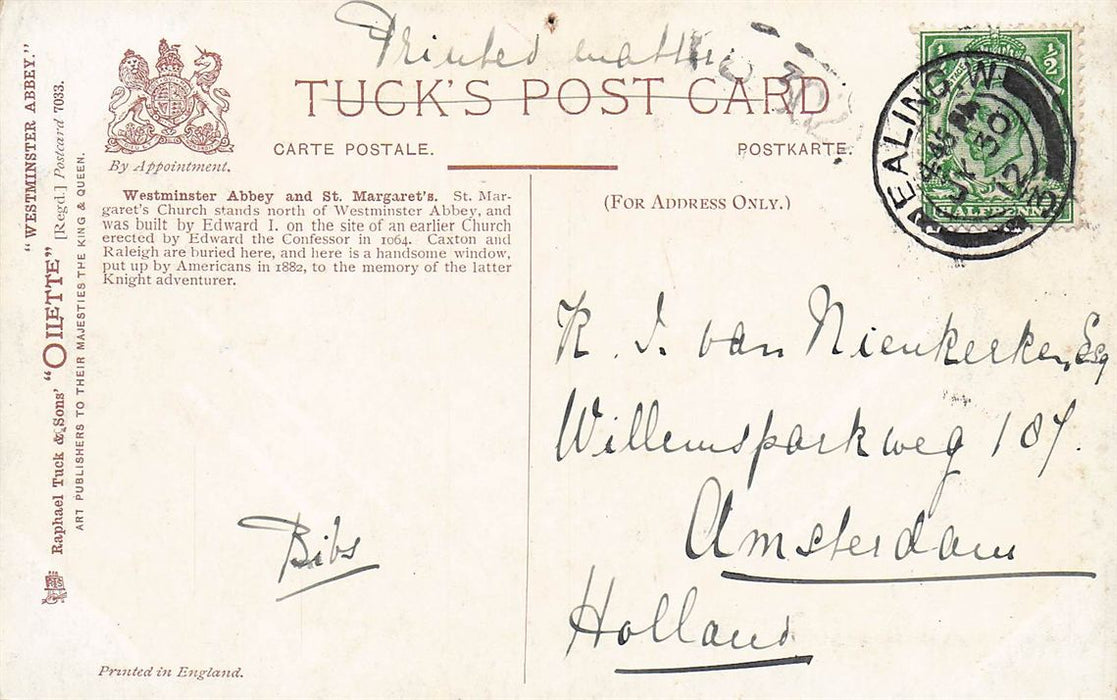 Printed matter
TUCK'S POST CARD
CARTE POSTALE.
POSTKARTE.
By Appointment.
(FOR ADDRESS ONLY.)
Westminster Abbey and St. Margaret's. St. Mar-
garet's Church stands north of Westminster Abbey, and
was built by Edward I. on the site of an earlier Church
erected by Edward the Confessor in 1064. Caxton and
Raleigh are buried here, and here is a handsome window,
put up by Americans in 1882, to the memory of the latter
Knight adventurer.
"WESTMINSTER ABBEY."
Raphael Tuck & Sons' "OILETTE" [Regd.] Postcard 7033.
ART PUBLISHERS TO THEIR MAJESTIES THE KING & QUEEN.
EALING. W.
4.45 PM
30
12
½
HALFPENNY
K. J. van Nieukerken, Esq
Willemsparkweg 187.
Amsterdam
Holland
Bibs
Printed in England.